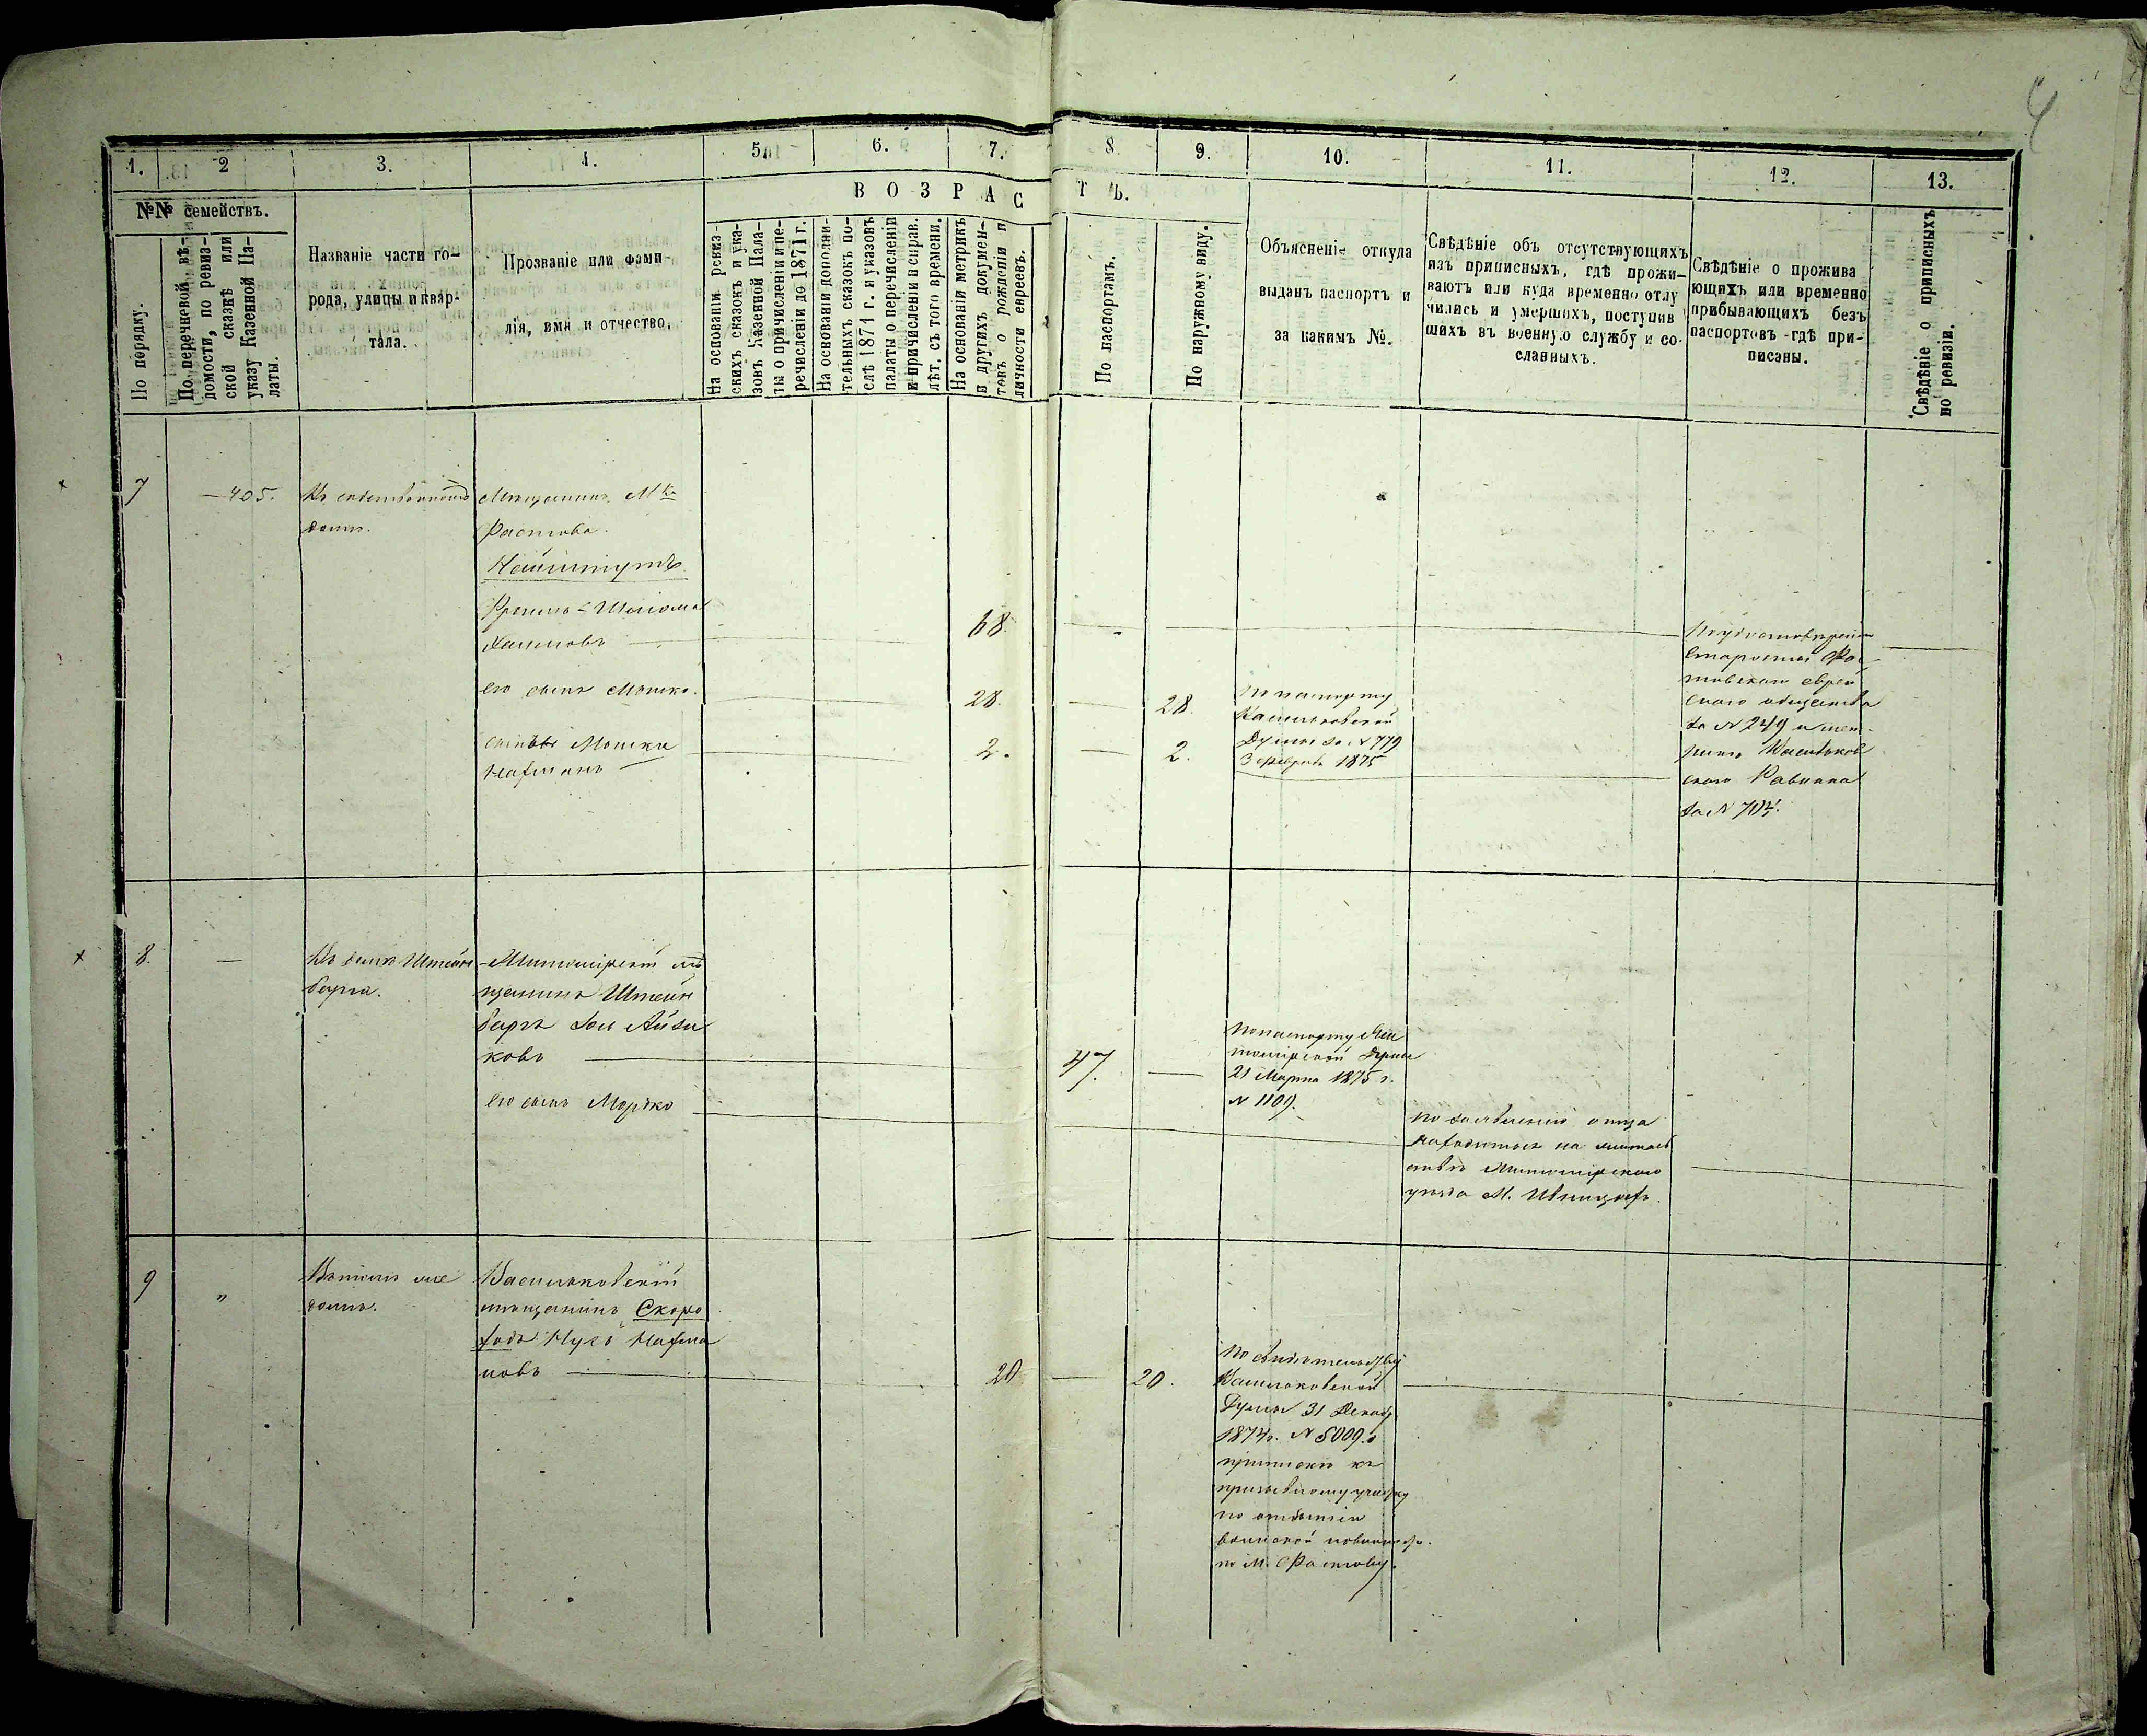 4
1. 2 3. 4. 5. 6. 7. 8 9. 10. 11. 12. 13.
№№ семействъ.
По порядку.
По перечневой вѣ-
домости, по ревиз-
ской сказкѣ или
указу Казенной Па-
латы.
Названіе части го-
рода, улицы и квар-
тала.
Прозваніе или фами-
лія, имя и отчество.
ВОЗРАСТЪ.
На основаніи ревиз-
скихъ сказокъ и ука-
зовъ Казенной Пала-
ты о причисленіи и пе-
речисленіи до 1871 г.
На основаніи дополни-
тельныхъ сказокъ по-
слѣ 1871 г. и указовъ
палаты о перечисленіи
и причисленіи и справ.
лѣт. съ того времени.
На основаніи метрикъ
и другихъ докумен-
товъ о рожденіи и
личности евреевъ.
По паспортамъ.
По наружному виду.
Объясненіе откуда
выданъ паспортъ и
за какимъ №.
Свѣдѣніе объ отсутствующихъ
изъ приписныхъ, гдѣ прожи-
ваютъ или куда временно отлу
чились и умершихъ, поступив
шихъ въ военную службу и со-
сланныхъ.
Свѣдѣніе о прожива
ющихъ или временно
прибывающихъ безъ
паспортовъ гдѣ при-
писаны.
Свѣдѣніе о приписныхъ
по ревизіи.
7
—405.
Въ собственномъ
домѣ.
Мѣщанинъ М-ка
Фастова
Шліома
Хаимовъ —
68.
его сынъ Мошко.
28. — 28.
сынъ Мошки
Нахманъ —
2. — 2.
По паспорту
Васильковской
Думы за № 779
3 Февраля 1875
По удостовѣренію
старосты Фас
товскаго еврей
скаго общества
за № 249 и мет-
рики Васильков
скаго Раввина
за №
8. —
Въ домѣ Штейн
барга.
Житомірскій мѣ
щанинъ Штейн
баргъ Айзи
ковъ —
47. —
По паспорту Жи
томірской Думы
21 Марта 1875 г.
№ 1109.
его сынъ Мордко
По заявленію отца
находится на
Житомірскаго
уѣзда М. Ивницахъ.
9 „
Въ томъ же
домѣ.
Васильковскій
мѣщанинъ Скоро
ходъ Нусъ Нахма
новъ —
20 — 20.
По свидѣтельству
Васильковской
Думы 31 Декаб.
1874 г. № 5009 о
припискѣ къ
призывному участку
по отбытію
воинской повинности
по М. Фастову.